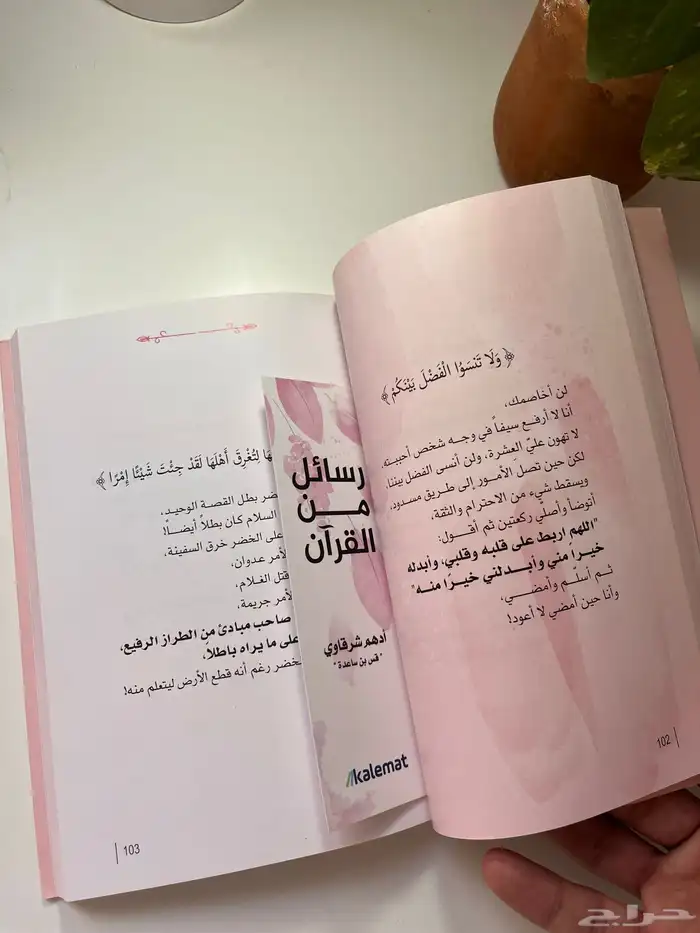 ﴿وَلَا تَنسَوُا الْفَضْلَ بَيْنَكُمْ﴾
لن أخاصمك،
أنا لا أرفع سيفاً في وجه شخص أحببته،
لا تهون عليّ العشرة، ولن أنسى الفضل بيننا،
لكن حين تصل الأمور إلى طريق مسدود،
ويسقط شيء من الاحترام والثقة،
أتوضأ وأصلّي ركعتين ثم أقول:
"اللهم اربط على قلبه وقلبي، وأبدله
خيراً مني وأبدلني خيرًا منه"
ثم أسلّم وأمضي،
وأنا حين أمضي لا أعود!
102
رسائل
من
القرآن
أدهم شرقاوي
"قس بن ساعدة"
kalemat
لِتُغْرِقَ أَهْلَهَا لَقَدْ جِئْتَ شَيْئًا إِمْرًا﴾
بطل القصة الوحيد،
السلام كان بطلاً أيضاً!
على الخضر خرق السفينة،
عدوان،
قتل الغلام،
جريمة،
صاحب مبادئ من الطراز الرفيع،
على ما يراه باطلاً،
رغم أنه قطع الأرض ليتعلم منه!
103
حراج